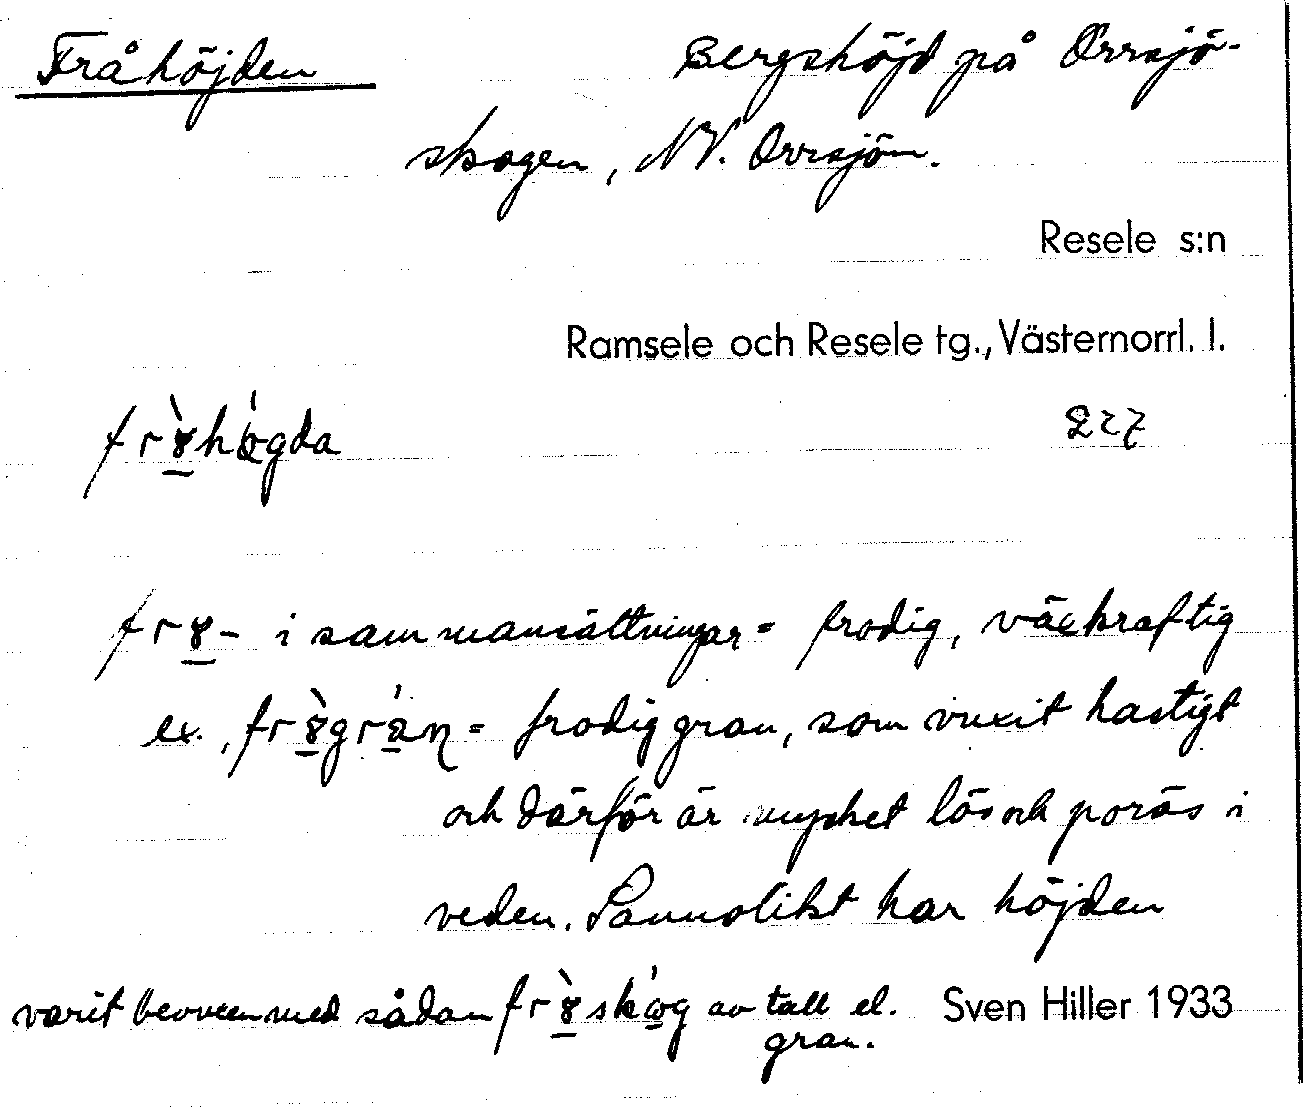 Fråhöjden Bergshöjd på Orrsjö-
skogen, NV. Orrsjön.
Resele s:n
Ramsele och Resele tg., Västernorrl. l.
227
i sammansättningar = frodig, växkraftig
ex., = frodig gran, som vuxit hastigt
och därför är mycket lös och porös i
veden. Sannolikt har höjden
varit bevuxen med sådan av tall el.
gran.
Sven Hiller 1933